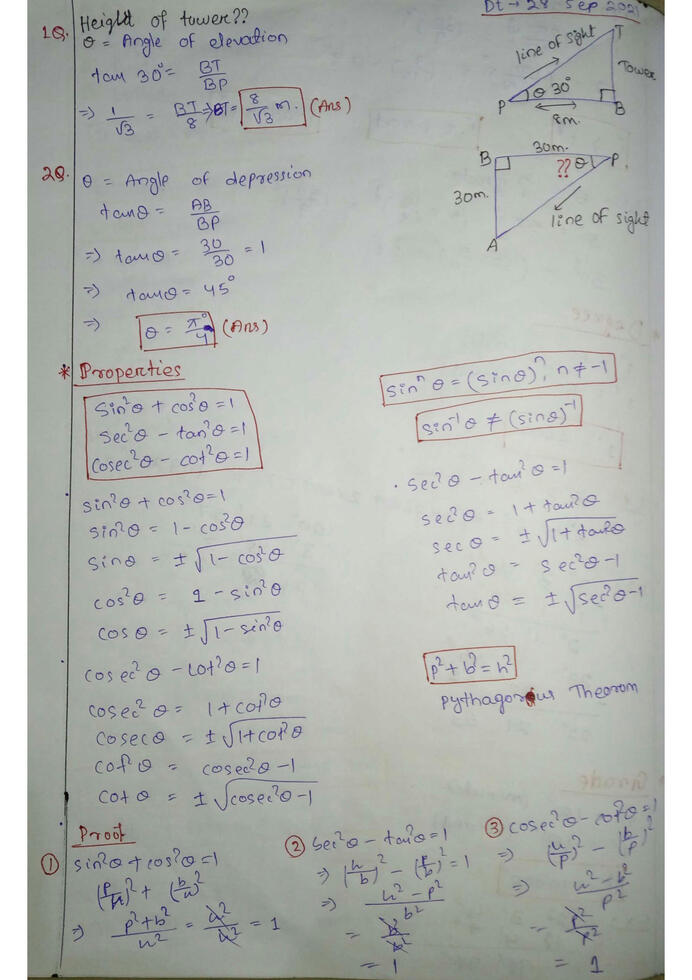 Dt → 28 Sep 2021
1Q. Height of tower??
θ = Angle of elevation
tan 30° = BT/BP
⇒ 1/√3 = BT/8 → BT = 8/√3 m. (Ans)
line of sight
T
Tower
θ 30°
P
B
8m.
2Q. θ = Angle of depression
tanθ = AB/BP
⇒ tanθ = 30/30 = 1
⇒ tanθ = 45°
⇒ θ = π°/4 (Ans)
30m.
B
?? θ
P
30m.
line of sight
A
* Properties
sin²θ + cos²θ = 1
sec²θ - tan²θ = 1
cosec²θ - cot²θ = 1
sinⁿθ = (sinθ)ⁿ, n ≠ -1
sin⁻¹θ ≠ (sinθ)⁻¹
. sin²θ + cos²θ = 1
sin²θ = 1 - cos²θ
sinθ = ±√1 - cos²θ
cos²θ = 1 - sin²θ
cosθ = ±√1 - sin²θ
. cosec²θ - cot²θ = 1
cosec²θ = 1 + cot²θ
cosecθ = ±√1 + cot²θ
cot²θ = cosec²θ - 1
cotθ = ±√cosec²θ - 1
. sec²θ - tan²θ = 1
sec²θ = 1 + tan²θ
secθ = ±√1 + tan²θ
tan²θ = sec²θ - 1
tanθ = ±√sec²θ - 1
p² + b² = h²
pythagorius Theorom
Proof
① sin²θ + cos²θ = 1
(p/h)² + (b/h)²
⇒ p² + b²/h² = h²/h² = 1
② sec²θ - tan²θ = 1
⇒ (h/b)² - (p/b)² = 1
⇒ h² - p²/b²
= b²/b²
= 1
③ cosec²θ - cot²θ = 1
⇒ (h/p)² - (b/p)²
⇒ h² - b²/p²
= p²/p²
= 1